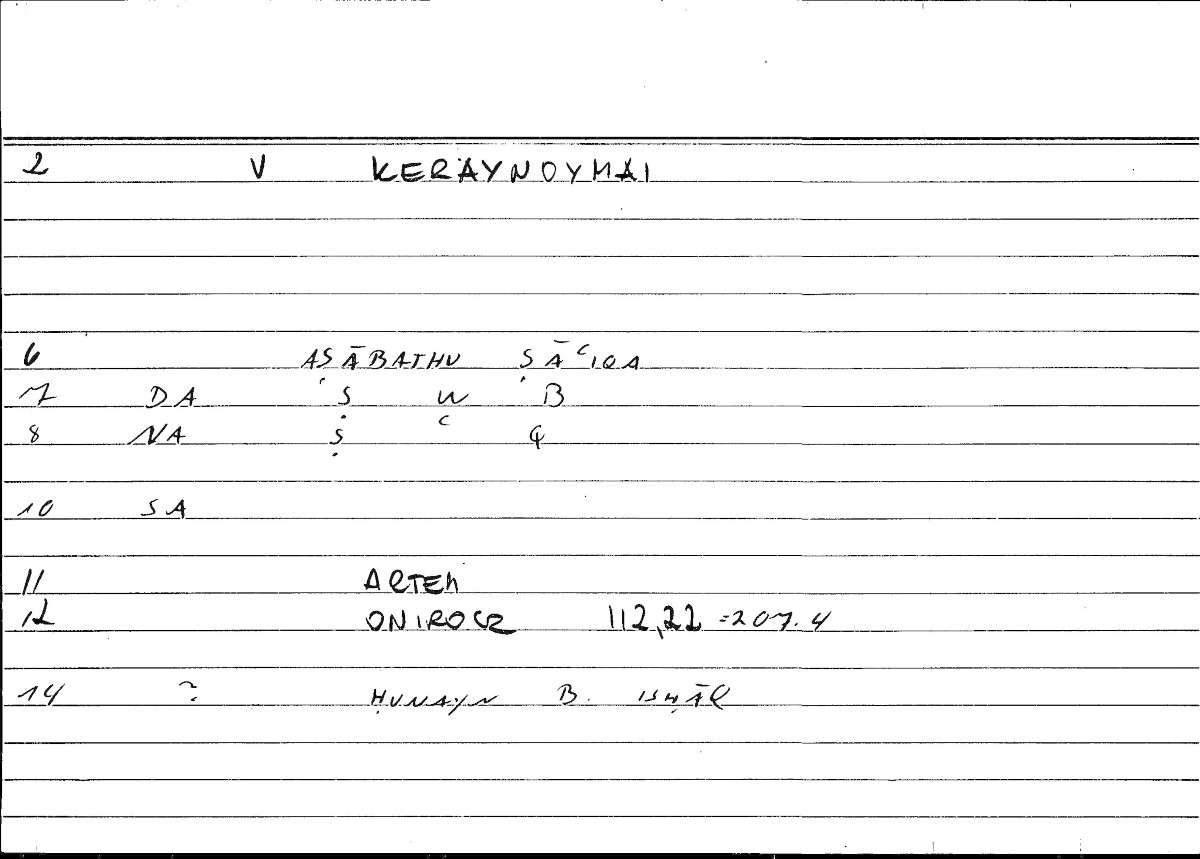 2 V KERAYNOYMAI
6 AṢĀBATHU ṢĀʿIQA
7 DA Ṣ W B
8 NA Ṣ ʿ Q
10 SA
11 ARTEM
12 ONIROCR 112,22 =207.4
14 ? ḤUNAYN B. ISḤĀQ